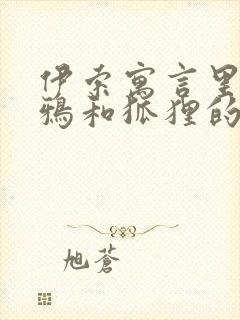 伊索寓言里
鸦和狐狸的
旭蒼